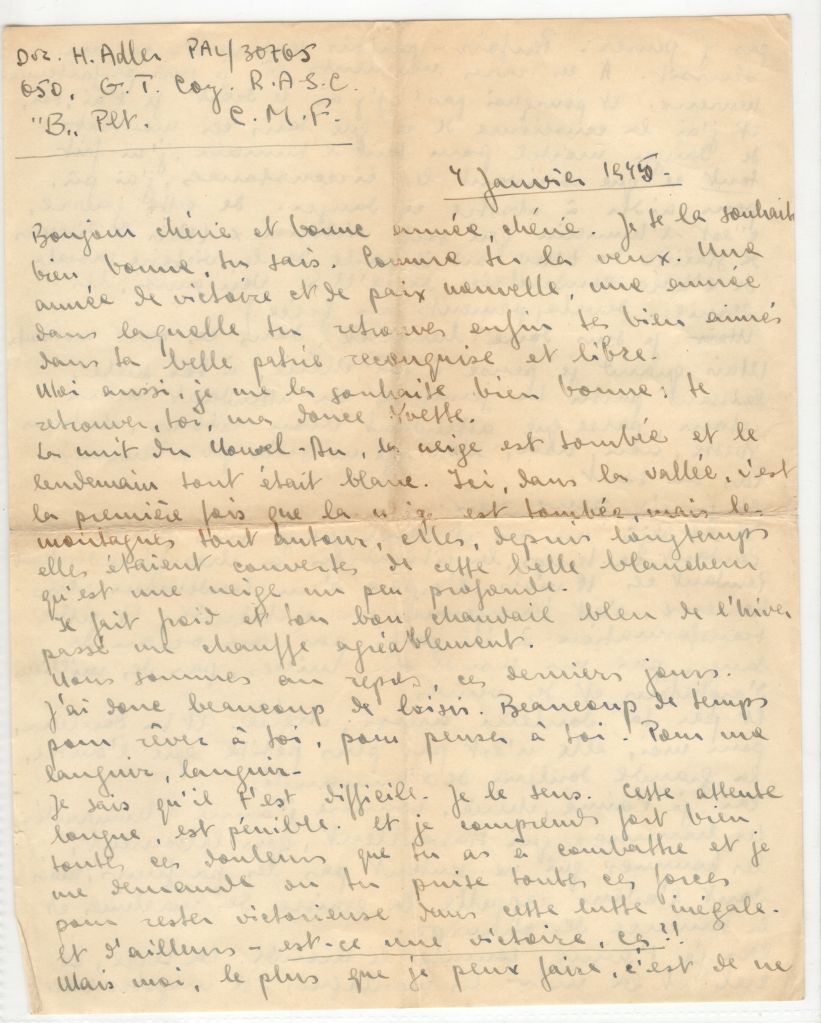 Dvr. H. Adler PAL/30765
650. G. T. Coy. R.A.S.C.
"B„ Plt. C.M.F.
4 Janvier 1945.-
Bonjour chérie et bonne année, chérie. Je te la souhaite
bien bonne, tu sais. Comme tu la veux. Une
année de victoire et de paix nouvelle, une année
dans laquelle tu retrouves enfin tes bien aimés
dans ta belle patrie reconquise et libre.
Moi aussi, je me la souhaite bien bonne: te
retrouver, toi, ma douce Yvette.
La nuit du Nouvel-An, la neige est tombée et le
lendemain tout était blanc. Ici, dans la vallée, c'est
la première fois que la neige est tombée, mais les
montagnes tout autour, elles, depuis longtemps
elles étaient couvertes de cette belle blancheur
qu'est une neige un peu profonde.
Il fait froid et ton bon chandail bleu de l'hiver
passé me chauffe agréablement.
Nous sommes au repos, ces derniers jours.
J'ai donc beaucoup de loisir. Beaucoup de temps
pour rêver à toi, pour penser à toi. Pour me
languir, languir.-
Je sais qu'il t'est difficile. Je le sens. Cette attente
longue, est pénible. Et je comprends fort bien
toutes ces douleurs que tu as à combattre et je
me demande ou tu puise toutes ces forces
pour rester victorieuse dans cette lutte inégale.
Et d'ailleurs - est-ce une victoire, ça?!
Mais moi, le plus que je peux faire, c'est de ne